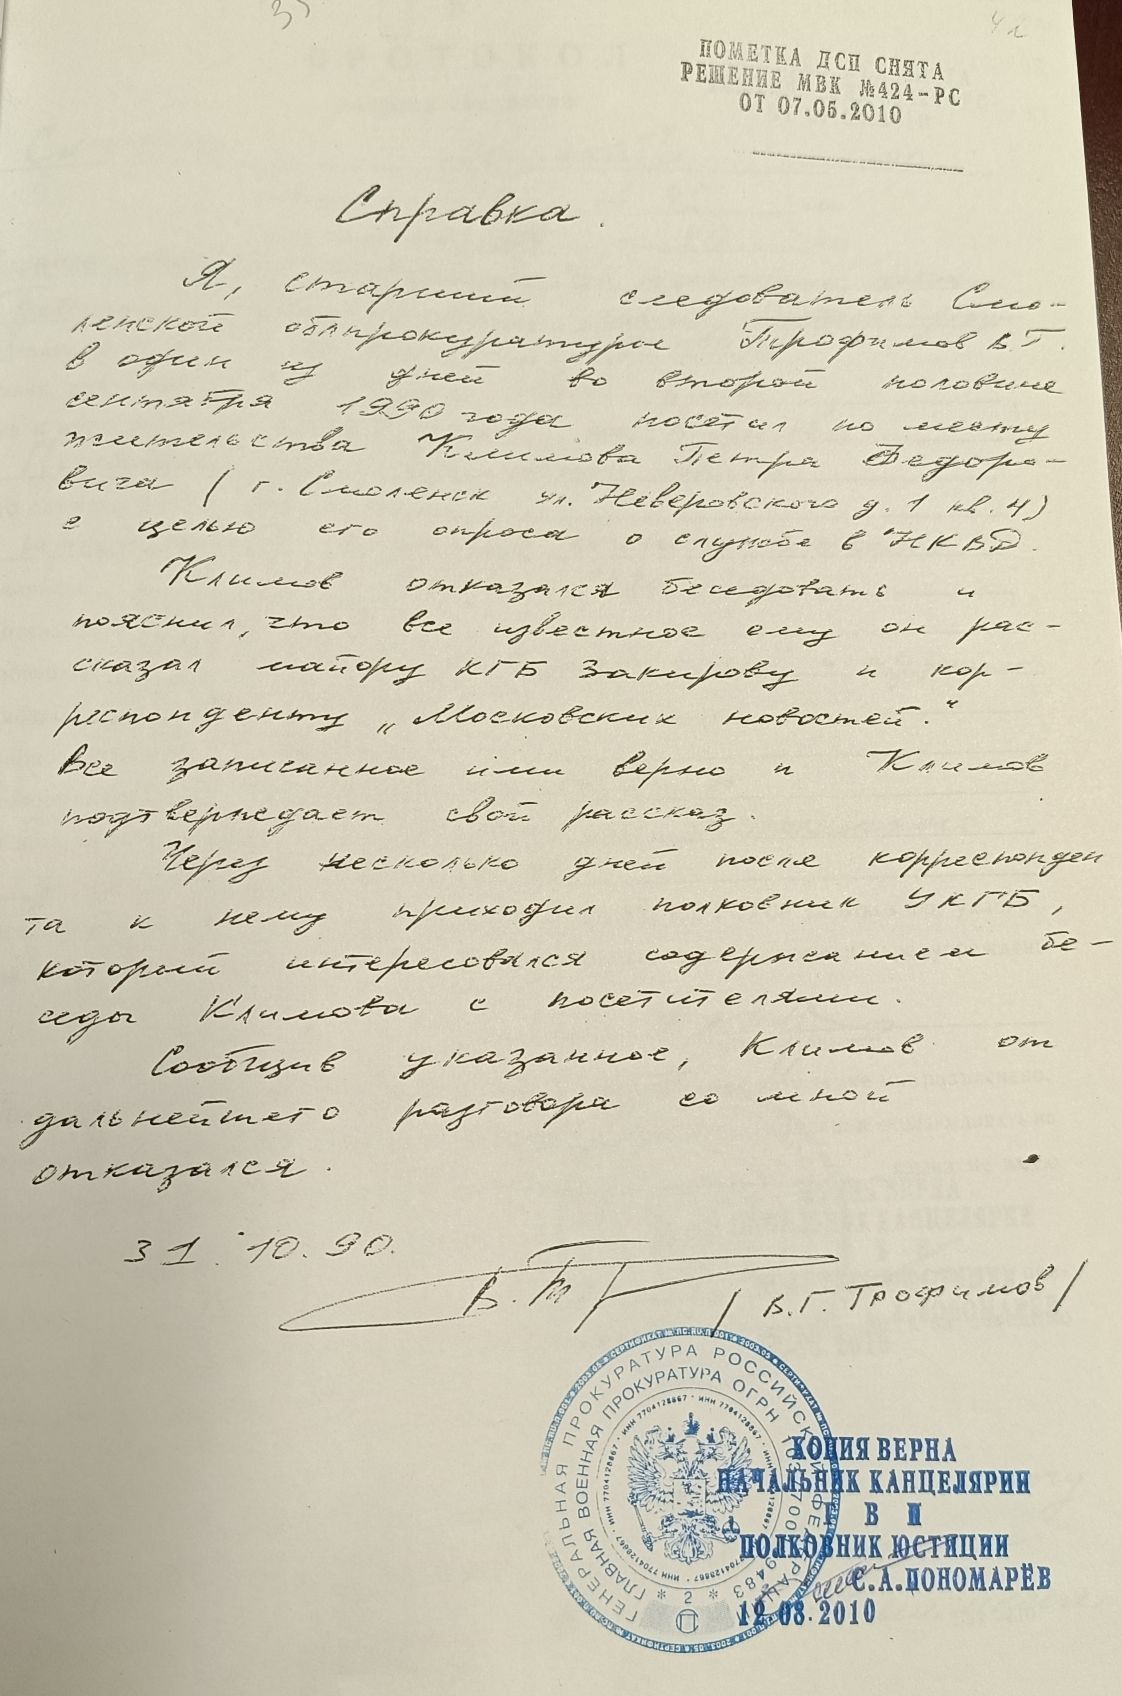 35
42
ПОМЕТКА ДСП СНЯТА
РЕШЕНИЕ МВК №424-РС
ОТ 07.05.2010
Справка.
Я, старший следователь Смо-
ленской облпрокуратуры Трофимов В.Г.
в один из дней во второй половине
сентября 1990 года посетил по месту
жительства Климова Петра Федоро-
вича (г. Смоленск ул. Неверовского д. 1 кв. 4)
с целью его опроса о службе в НКВД.
Климов отказался беседовать и
пояснил, что все известное ему он рас-
сказал майору КГБ Закирову и кор-
респонденту „Московских новостей."
Все записанное ими верно и Климов
подтверждает свой рассказ.
Через несколько дней после корреспонден
та к нему приходил полковник УКГБ,
который интересовался содержанием бе-
седы Климова с посетителями.
Сообщив указанное, Климов от
дальнейшего разговора со мной
отказался.
31.10.90.
/ В.Г. Трофимов /
ГЕНЕРАЛЬНАЯ ПРОКУРАТУРА РОССИЙСКОЙ ФЕДЕРАЦИИ
ГЛАВНАЯ ВОЕННАЯ ПРОКУРАТУРА ОГРН
ИНН 7704128867
2
КОПИЯ ВЕРНА
НАЧАЛЬНИК КАНЦЕЛЯРИИ
Г В П
ПОЛКОВНИК ЮСТИЦИИ
С.А.ПОНОМАРЁВ
12 08.2010